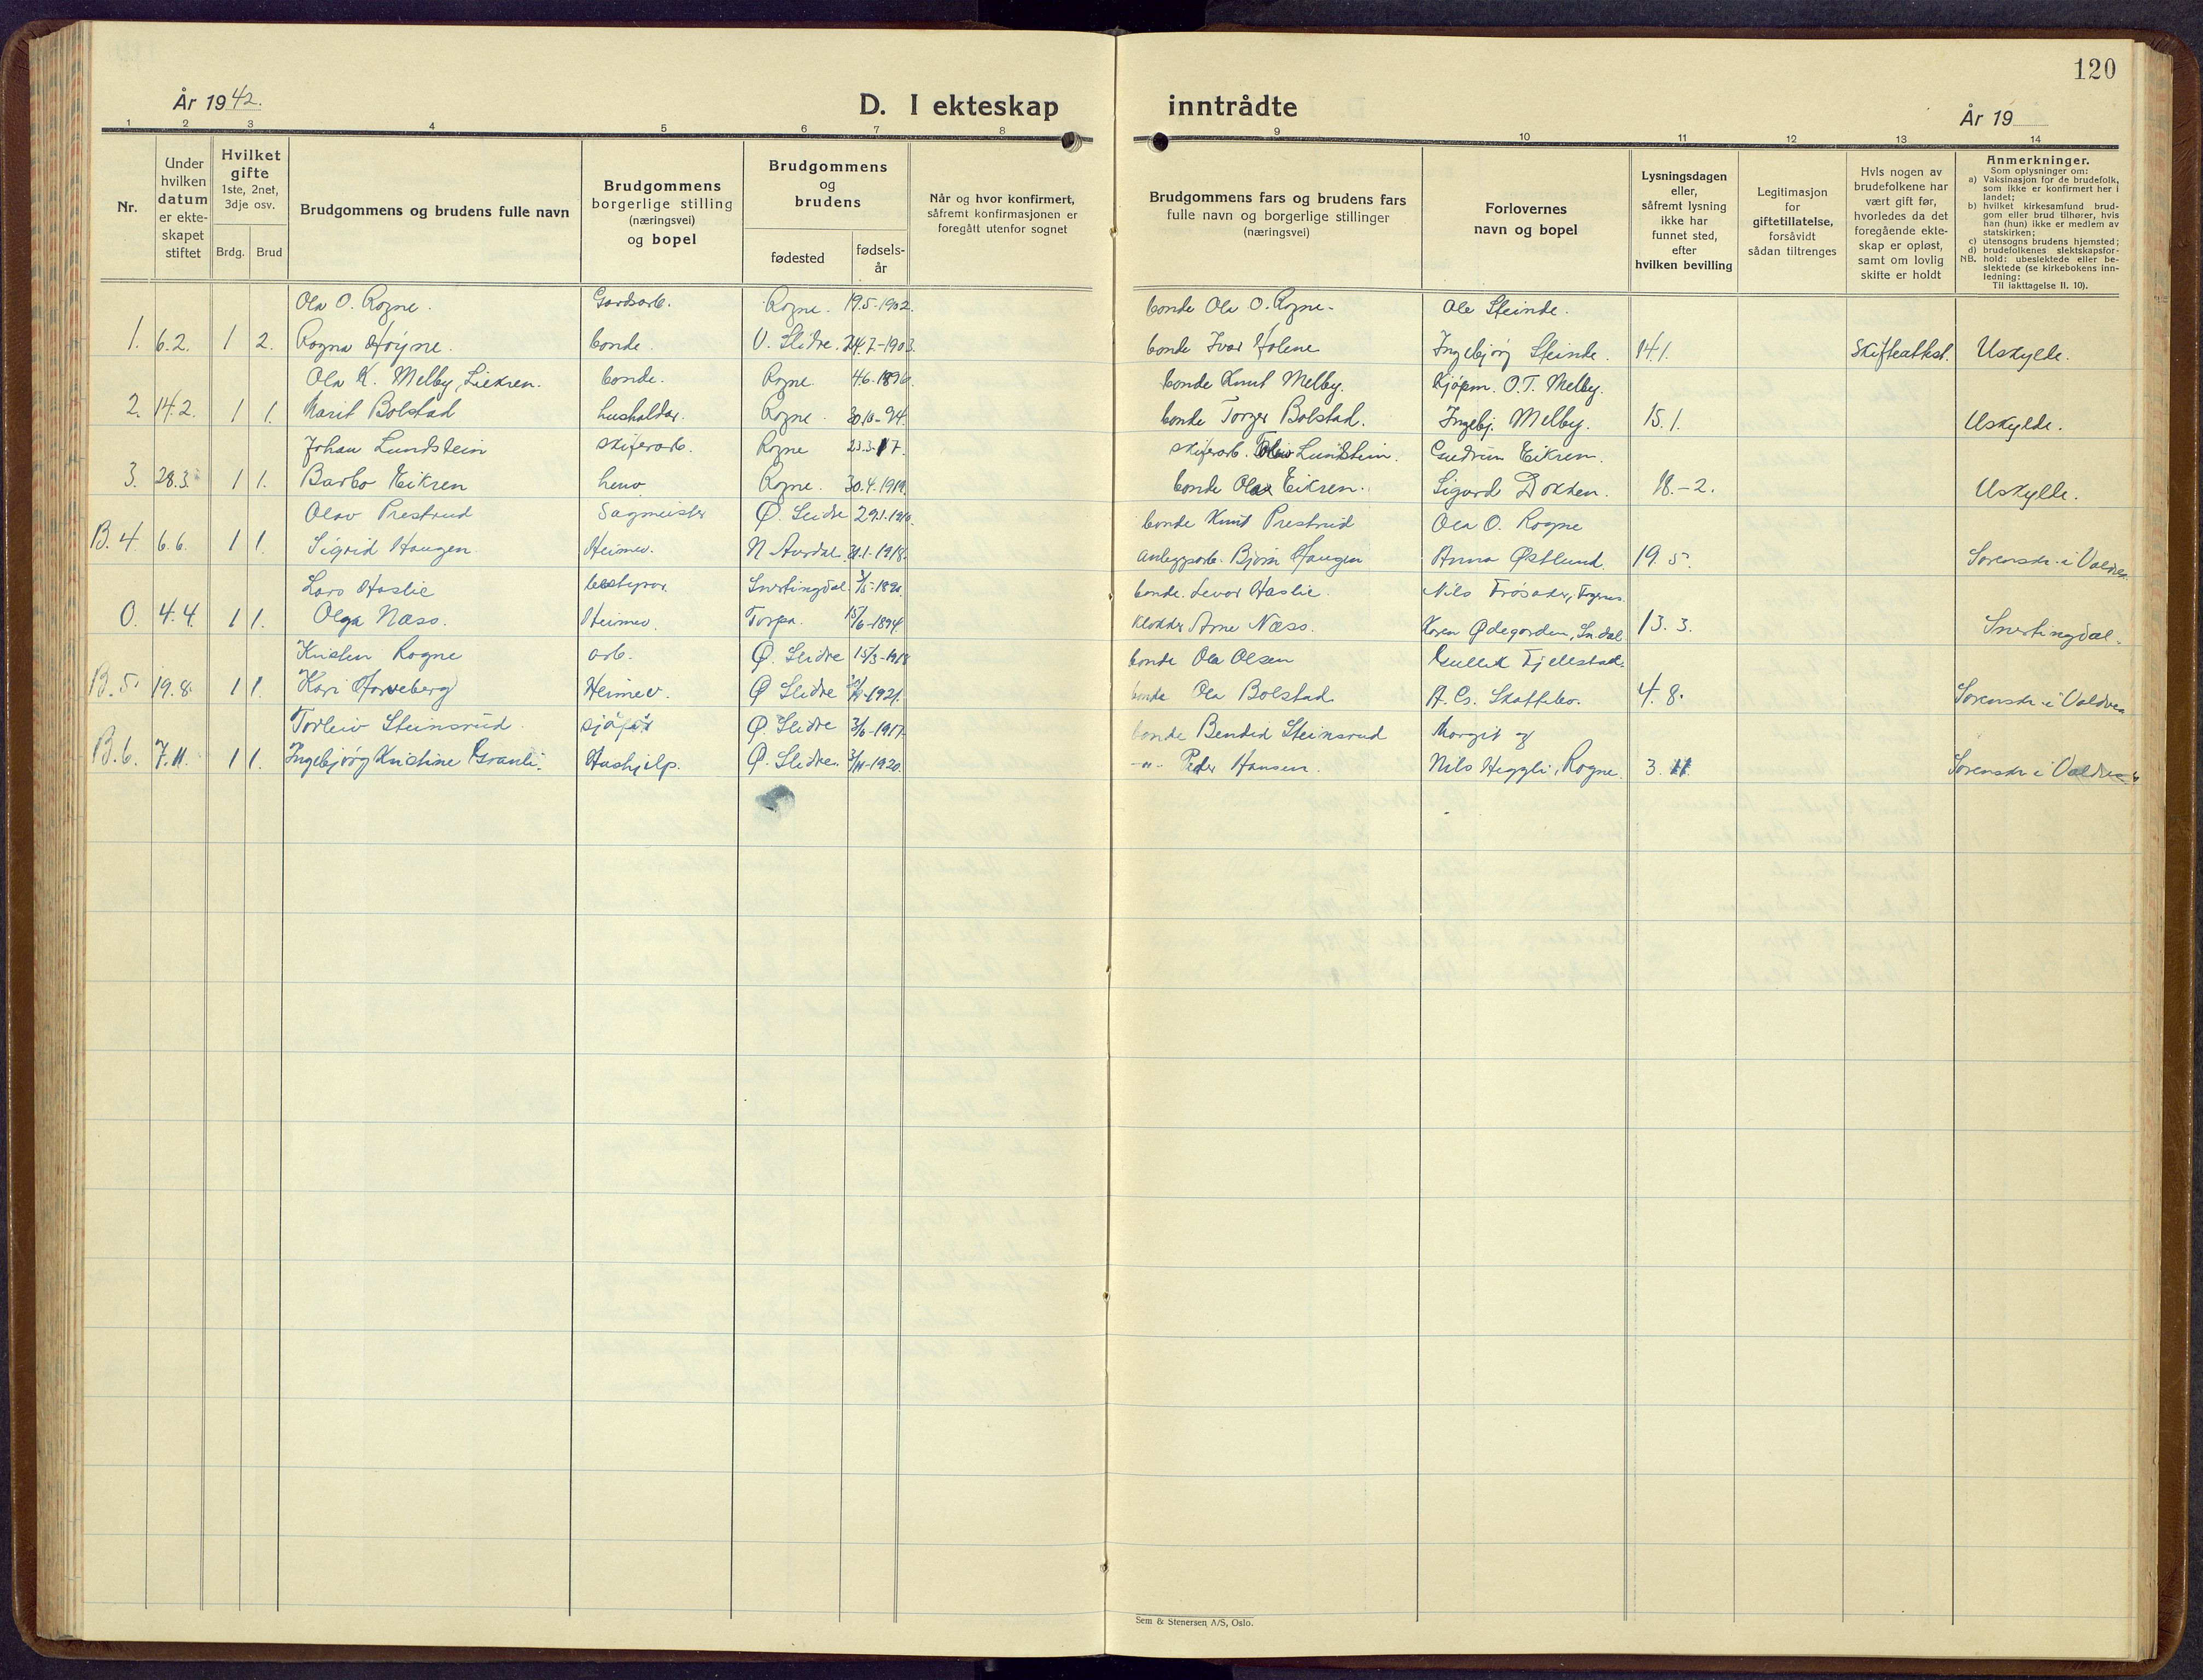 120
År 1942.
D. I ekteskap inntrådte
År 19
1 2 3 4 5 6 7 8 9 10 11 12 13 14
Nr.
Under hvilken datum er ekteskapet stiftet
Hvilket gifte 1ste, 2net, 3dje osv.
Brdg. Brud
Brudgommens og brudens fulle navn
Brudgommens borgerlige stilling (næringsvei) og bopel
Brudgommens og brudens
fødested
fødsels-år
Når og hvor konfirmert, såfremt konfirmasjonen er foregått utenfor sognet
Brudgommens fars og brudens fars fulle navn og borgerlige stillinger (næringsvei)
Forlovernes navn og bopel
Lysningsdagen eller, såfremt lysning ikke har funnet sted, efter hvilken bevilling
Legitimasjon for giftetillatelse, forsåvidt sådan tiltrenges
Hvis nogen av brudefolkene har vært gift før, hvorledes da det foregående ekteskap er opløst, samt om lovlig skifte er holdt
Anmerkninger.
Som oplysninger om:
a) Vaksinasjon for de brudefolk, som ikke er konfirmert her i landet;
b) hvilket kirkesamfund brudgom eller brud tilhører, hvis han (hun) ikke er medlem av statskirken;
c) utensogns brudens hjemsted;
d) brudefolkenes slektskapsforhold: ubeslektede eller beslektede (se kirkebokens innledning:
NB.
Til iakttagelse II. 10).
Ola O. Rogne. Gardsarb. Rogne. 19.5-1902. bonde Ola O. Rogne. Ole Steinde.
1. 6.2. 1 2. Ragna Høyne. bonde. V. Slidre. 24.7-1903. bonde Ivar Holene Ingebjørg Steinde. 14.1. Skifteattest. Uskylde.
Ola K. Melby, Liekren. bonde. Rogne. 4.6.1896. bonde Knut Melby. Kjøpm. O.T. Melby.
2. 14.2. 1 1. Marit Bolstad husholdar. Rogne. 30.10-94. bonde Torger Bolstad. Ingebj. Melby. 15.1. Uskylde.
Johan Lundstein skiferarb. Rogne 23.3-17. skiferarb. Lundstein. Gudrun Eikren.
3. 28.3. 1 1. Barbo Eikren heim Rogne. 30.4.1919. bonde Olav Eikren. Sigurd Dokken. 18.-2. Uskylle.
Olav Prestrud Sagmeister Ø. Slidre 29.1.1910. bonde Knut Prestrud Ola O. Rogne
B. 4. 6.6. 1 1. Sigrid Haugen. Heimev. N Aurdal. 31.1-1918. anleggsarb. Bjørn Haugen Anna Østlund. 19.5. Sorenskr. i Valdres
Lars Haslie bestyrar. Snertingdal. 1/5-1890. bonde. Levor Haslie. Nils Frøsaker, Fagernes.
0. 4.4. 1 1. Olga Næss. Heimev. Torpa. 15/6-1894. klokker Arne Næss. Karen Ødegarden, Sn.dal 13.3. Snertingdal.
Kristen Rogne arb. Ø. Slidre 15/3-1918 bonde Ola Olsen Gullik Fjellstad.
B. 5. 19.8. 1 1. Kari Harreberg Heimev. Ø Slidre -1921. bonde Ola Bolstad A. G. Skattebo. 4.8. Sorenskr. i Valdres
Torleiv Steinsrud. sjåfør Ø. Slidre 3/6-1917. bonde Bendik Steinsrud Margit og
B. 6. 7.11. 1 1. Ingebjørg Kristine Granli. Hushjelp. Ø. Slidre. 3/11-1920. -"- Peder Hansen. Nils Heggli, Rogne. 3.11. Sorenskr i Valdres
Sem & Stenersen A/S, Oslo.